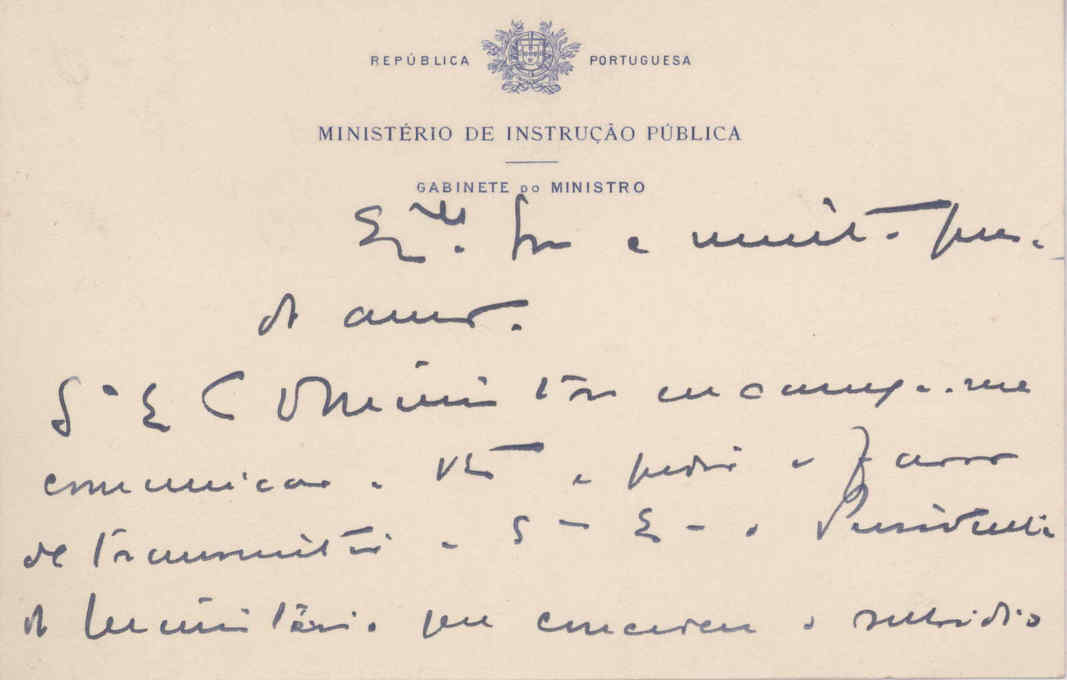 REPÚBLICA PORTUGUESA
MINISTÉRIO DE INSTRUÇÃO PÚBLICA
GABINETE DO MINISTRO
Exmo. Snr e muito pre-
do amigo.
S. E. O Ministro encarrega-me
comunicar a V. e pedir o favor
de transmitir a S. E. o Presidente
do Ministério que concedeu o subsidio